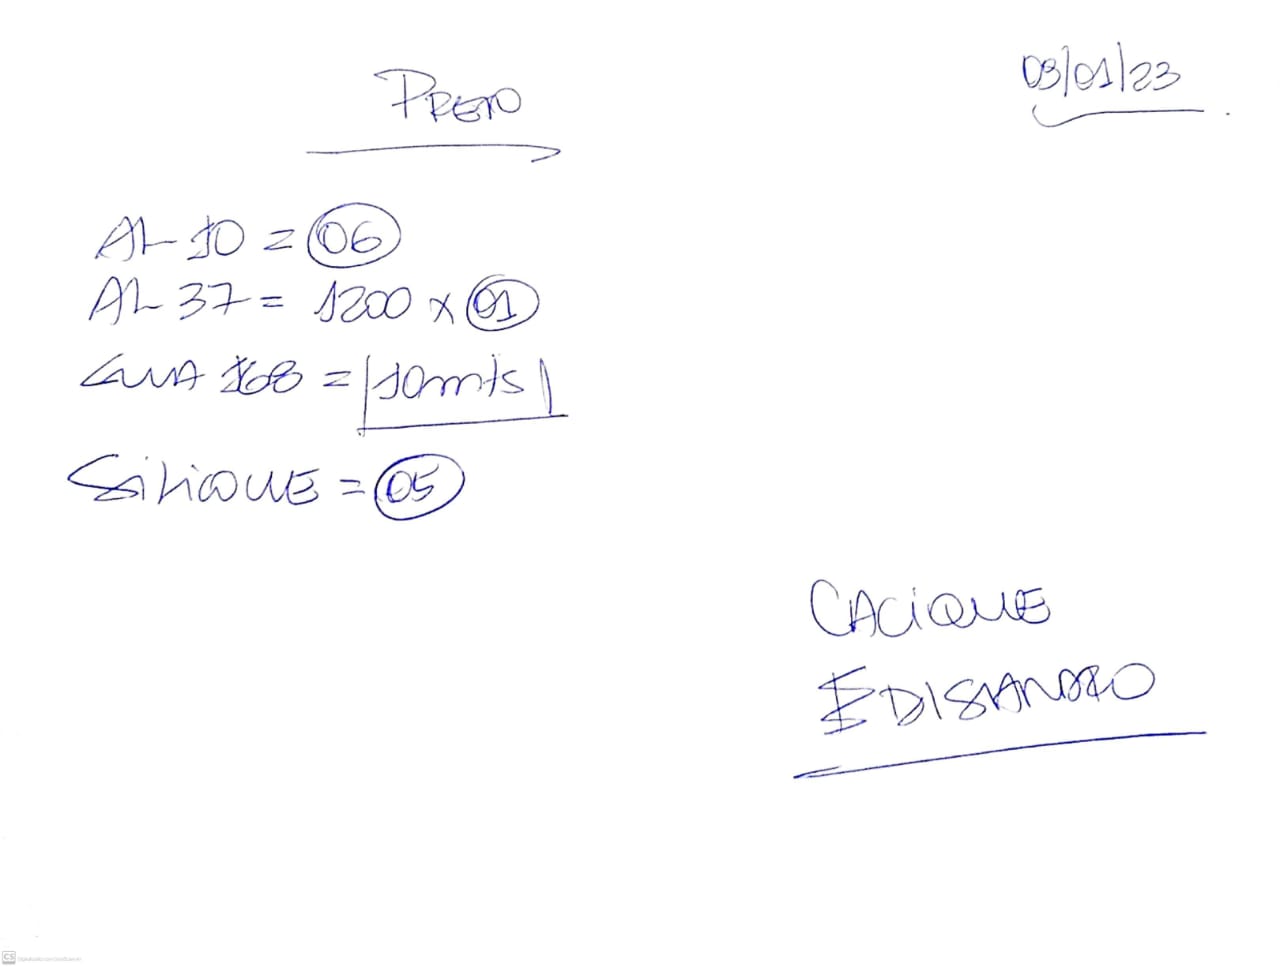 PRETO
03/01/23
AL 10 = 06
AL 37 = 1200 x 01
GUA 168 = 10mts
SILICONE = 05
CACIQUE
EDISANDRO
CS